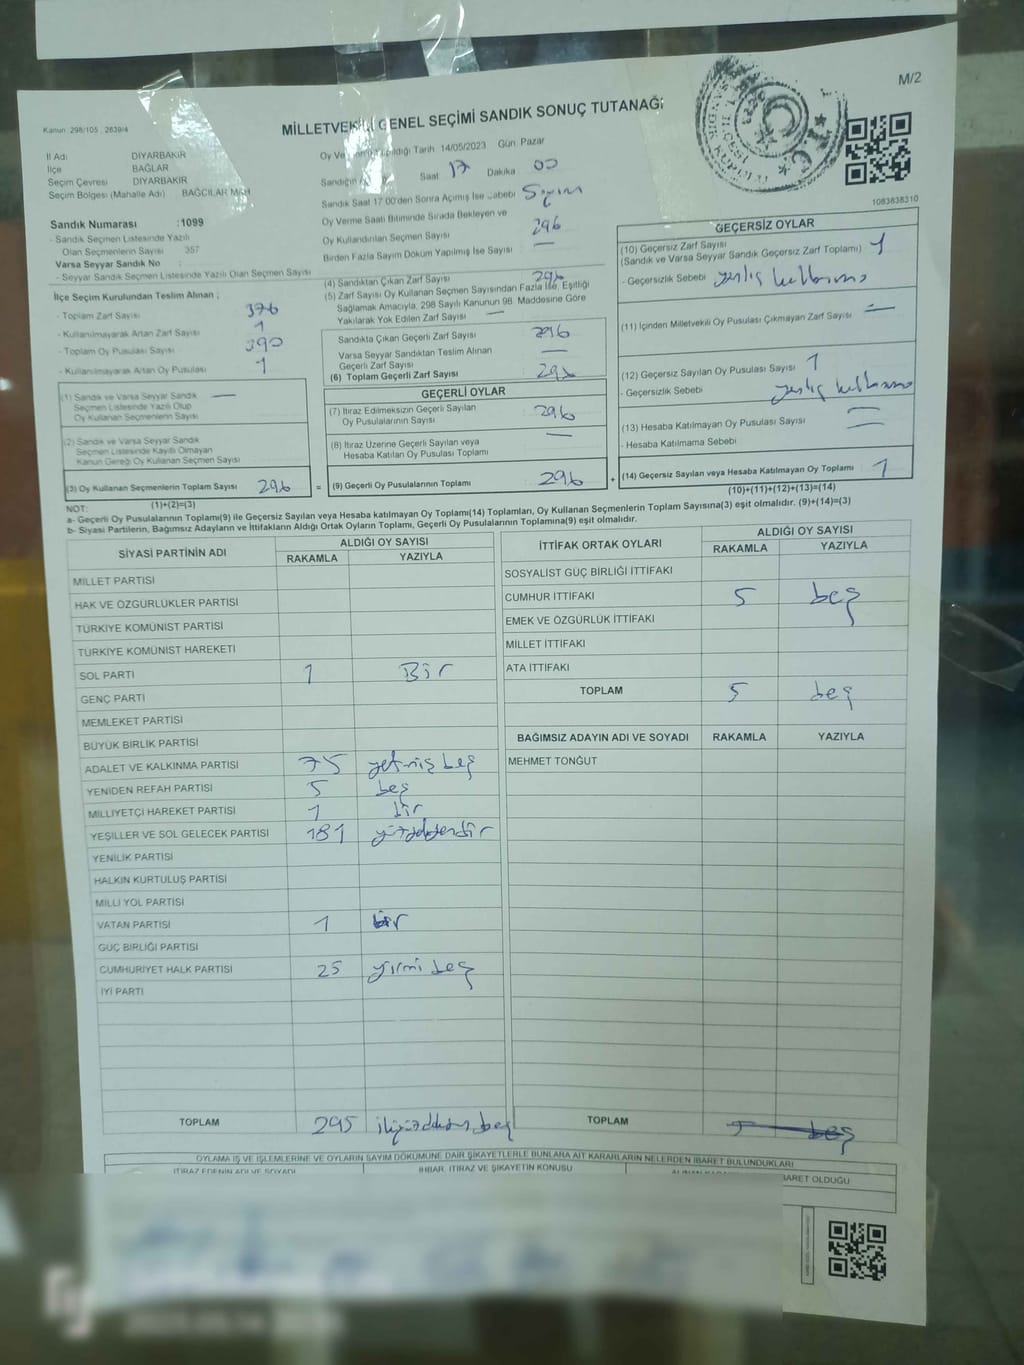 M/2
Kanun: 298/105, 2839/4
MİLLETVEKİLİ GENEL SEÇİMİ SANDIK SONUÇ TUTANAĞI
İl Adı DİYARBAKIR
İlçe BAĞLAR
Seçim Çevresi DİYARBAKIR
Seçim Bölgesi (Mahalle Adı) BAĞCILAR MAH
Tarih 14/05/2023 Gün: Pazar
Saat 17 Dakika 00
Sandık Saat 17:00'den Sonra Açılmış İse Sebebi Sayım
Sandık Numarası :1099
- Sandık Seçmen Listesinde Yazılı
Olan Seçmenlerin Sayısı 357
Varsa Seyyar Sandık No
- Seyyar Sandık Seçmen Listesinde Yazılı Olan Seçmen Sayısı
İlçe Seçim Kurulundan Teslim Alınan ;
- Toplam Zarf Sayısı 376
- Kullanılmayarak Artan Zarf Sayısı 1
- Toplam Oy Pusulası Sayısı 390
- Kullanılmayarak Artan Oy Pusulası 1
(1) Sandık ve Varsa Seyyar Sandık
Seçmen Listesinde Yazılı Olup
Oy Kullanan Seçmen Sayısı —
(2) Sandık ve Varsa Seyyar Sandık
Seçmen Listesinde Kayıtlı Olmayan
Kanun Gereği Oy Kullanan Seçmen Sayısı
(3) Oy Kullanan Seçmenlerin Toplam Sayısı 296
(1)+(2)=(3)
Oy Verme Saati Bitiminde Sırada Bekleyen ve
Oy Kullandırılan Seçmen Sayısı 296
Birden Fazla Sayım Döküm Yapılmış İse Sayısı —
(4) Sandıktan Çıkan Zarf Sayısı 296
(5) Zarf Sayısı Oy Kullanan Seçmen Sayısından Fazla İse, Eşitliği
Sağlamak Amacıyla, 298 Sayılı Kanunun 98. Maddesine Göre
Yakılarak Yok Edilen Zarf Sayısı —
Sandıkta Çıkan Geçerli Zarf Sayısı 296
Varsa Seyyar Sandıktan Teslim Alınan
Geçerli Zarf Sayısı —
(6) Toplam Geçerli Zarf Sayısı
GEÇERLİ OYLAR
(7) İtiraz Edilmeksizin Geçerli Sayılan
Oy Pusulalarının Sayısı 296
(8) İtiraz Üzerine Geçerli Sayılan veya
Hesaba Katılan Oy Pusulası Toplamı —
= (9) Geçerli Oy Pusulalarının Toplamı 296
1083838310
GEÇERSİZ OYLAR
(10) Geçersiz Zarf Sayısı
(Sandık ve Varsa Seyyar Sandık Geçersiz Zarf Toplamı) 1
- Geçersizlik Sebebi yanlış kullanma
(11) İçinden Milletvekili Oy Pusulası Çıkmayan Zarf Sayısı —
(12) Geçersiz Sayılan Oy Pusulası Sayısı 1
- Geçersizlik Sebebi yanlış kullanma
(13) Hesaba Katılmayan Oy Pusulası Sayısı —
- Hesaba Katılmama Sebebi —
+ (14) Geçersiz Sayılan veya Hesaba Katılmayan Oy Toplamı 1
(10)+(11)+(12)+(13)=(14)
NOT:
a- Geçerli Oy Pusulalarının Toplamı(9) ile Geçersiz Sayılan veya Hesaba Katılmayan Oy Toplamı(14) Toplamları, Oy Kullanan Seçmenlerin Toplam Sayısına(3) eşit olmalıdır. (9)+(14)=(3)
b- Siyasi Partilerin, Bağımsız Adayların ve İttifakların Aldığı Ortak Oyların Toplamı, Geçerli Oy Pusulalarının Toplamına(9) eşit olmalıdır.
SİYASİ PARTİNİN ADI ALDIĞI OY SAYISI
RAKAMLA YAZIYLA
MİLLET PARTİSİ
HAK VE ÖZGÜRLÜKLER PARTİSİ
TÜRKİYE KOMÜNİST PARTİSİ
TÜRKİYE KOMÜNİST HAREKETİ
SOL PARTİ 1 Bir
GENÇ PARTİ
MEMLEKET PARTİSİ
BÜYÜK BİRLİK PARTİSİ
ADALET VE KALKINMA PARTİSİ 75 yetmiş beş
YENİDEN REFAH PARTİSİ 5 beş
MİLLİYETÇİ HAREKET PARTİSİ 1 bir
YEŞİLLER VE SOL GELECEK PARTİSİ 181
YENİLİK PARTİSİ
HALKIN KURTULUŞ PARTİSİ
MİLLİ YOL PARTİSİ
VATAN PARTİSİ 1 bir
GÜÇ BİRLİĞİ PARTİSİ
CUMHURİYET HALK PARTİSİ 25 yirmi beş
İYİ PARTİ
TOPLAM 295
İTTİFAK ORTAK OYLARI ALDIĞI OY SAYISI
RAKAMLA YAZIYLA
SOSYALİST GÜÇ BİRLİĞİ İTTİFAKI
CUMHUR İTTİFAKI 5 beş
EMEK VE ÖZGÜRLÜK İTTİFAKI
MİLLET İTTİFAKI
ATA İTTİFAKI
TOPLAM 5 beş
BAĞIMSIZ ADAYIN ADI VE SOYADI RAKAMLA YAZIYLA
MEHMET TONĞUT
TOPLAM beş
OYLAMA İŞ VE İŞLEMLERİNE VE OYLARIN SAYIM DÖKÜMÜNE DAİR ŞİKAYETLERLE BUNLARA AİT KARARLARIN NELERDEN İBARET BULUNDUKLARI
İTİRAZ EDENİN ADI VE SOYADI İHBAR, İTİRAZ VE ŞİKAYETİN KONUSU İBARET OLDUĞU